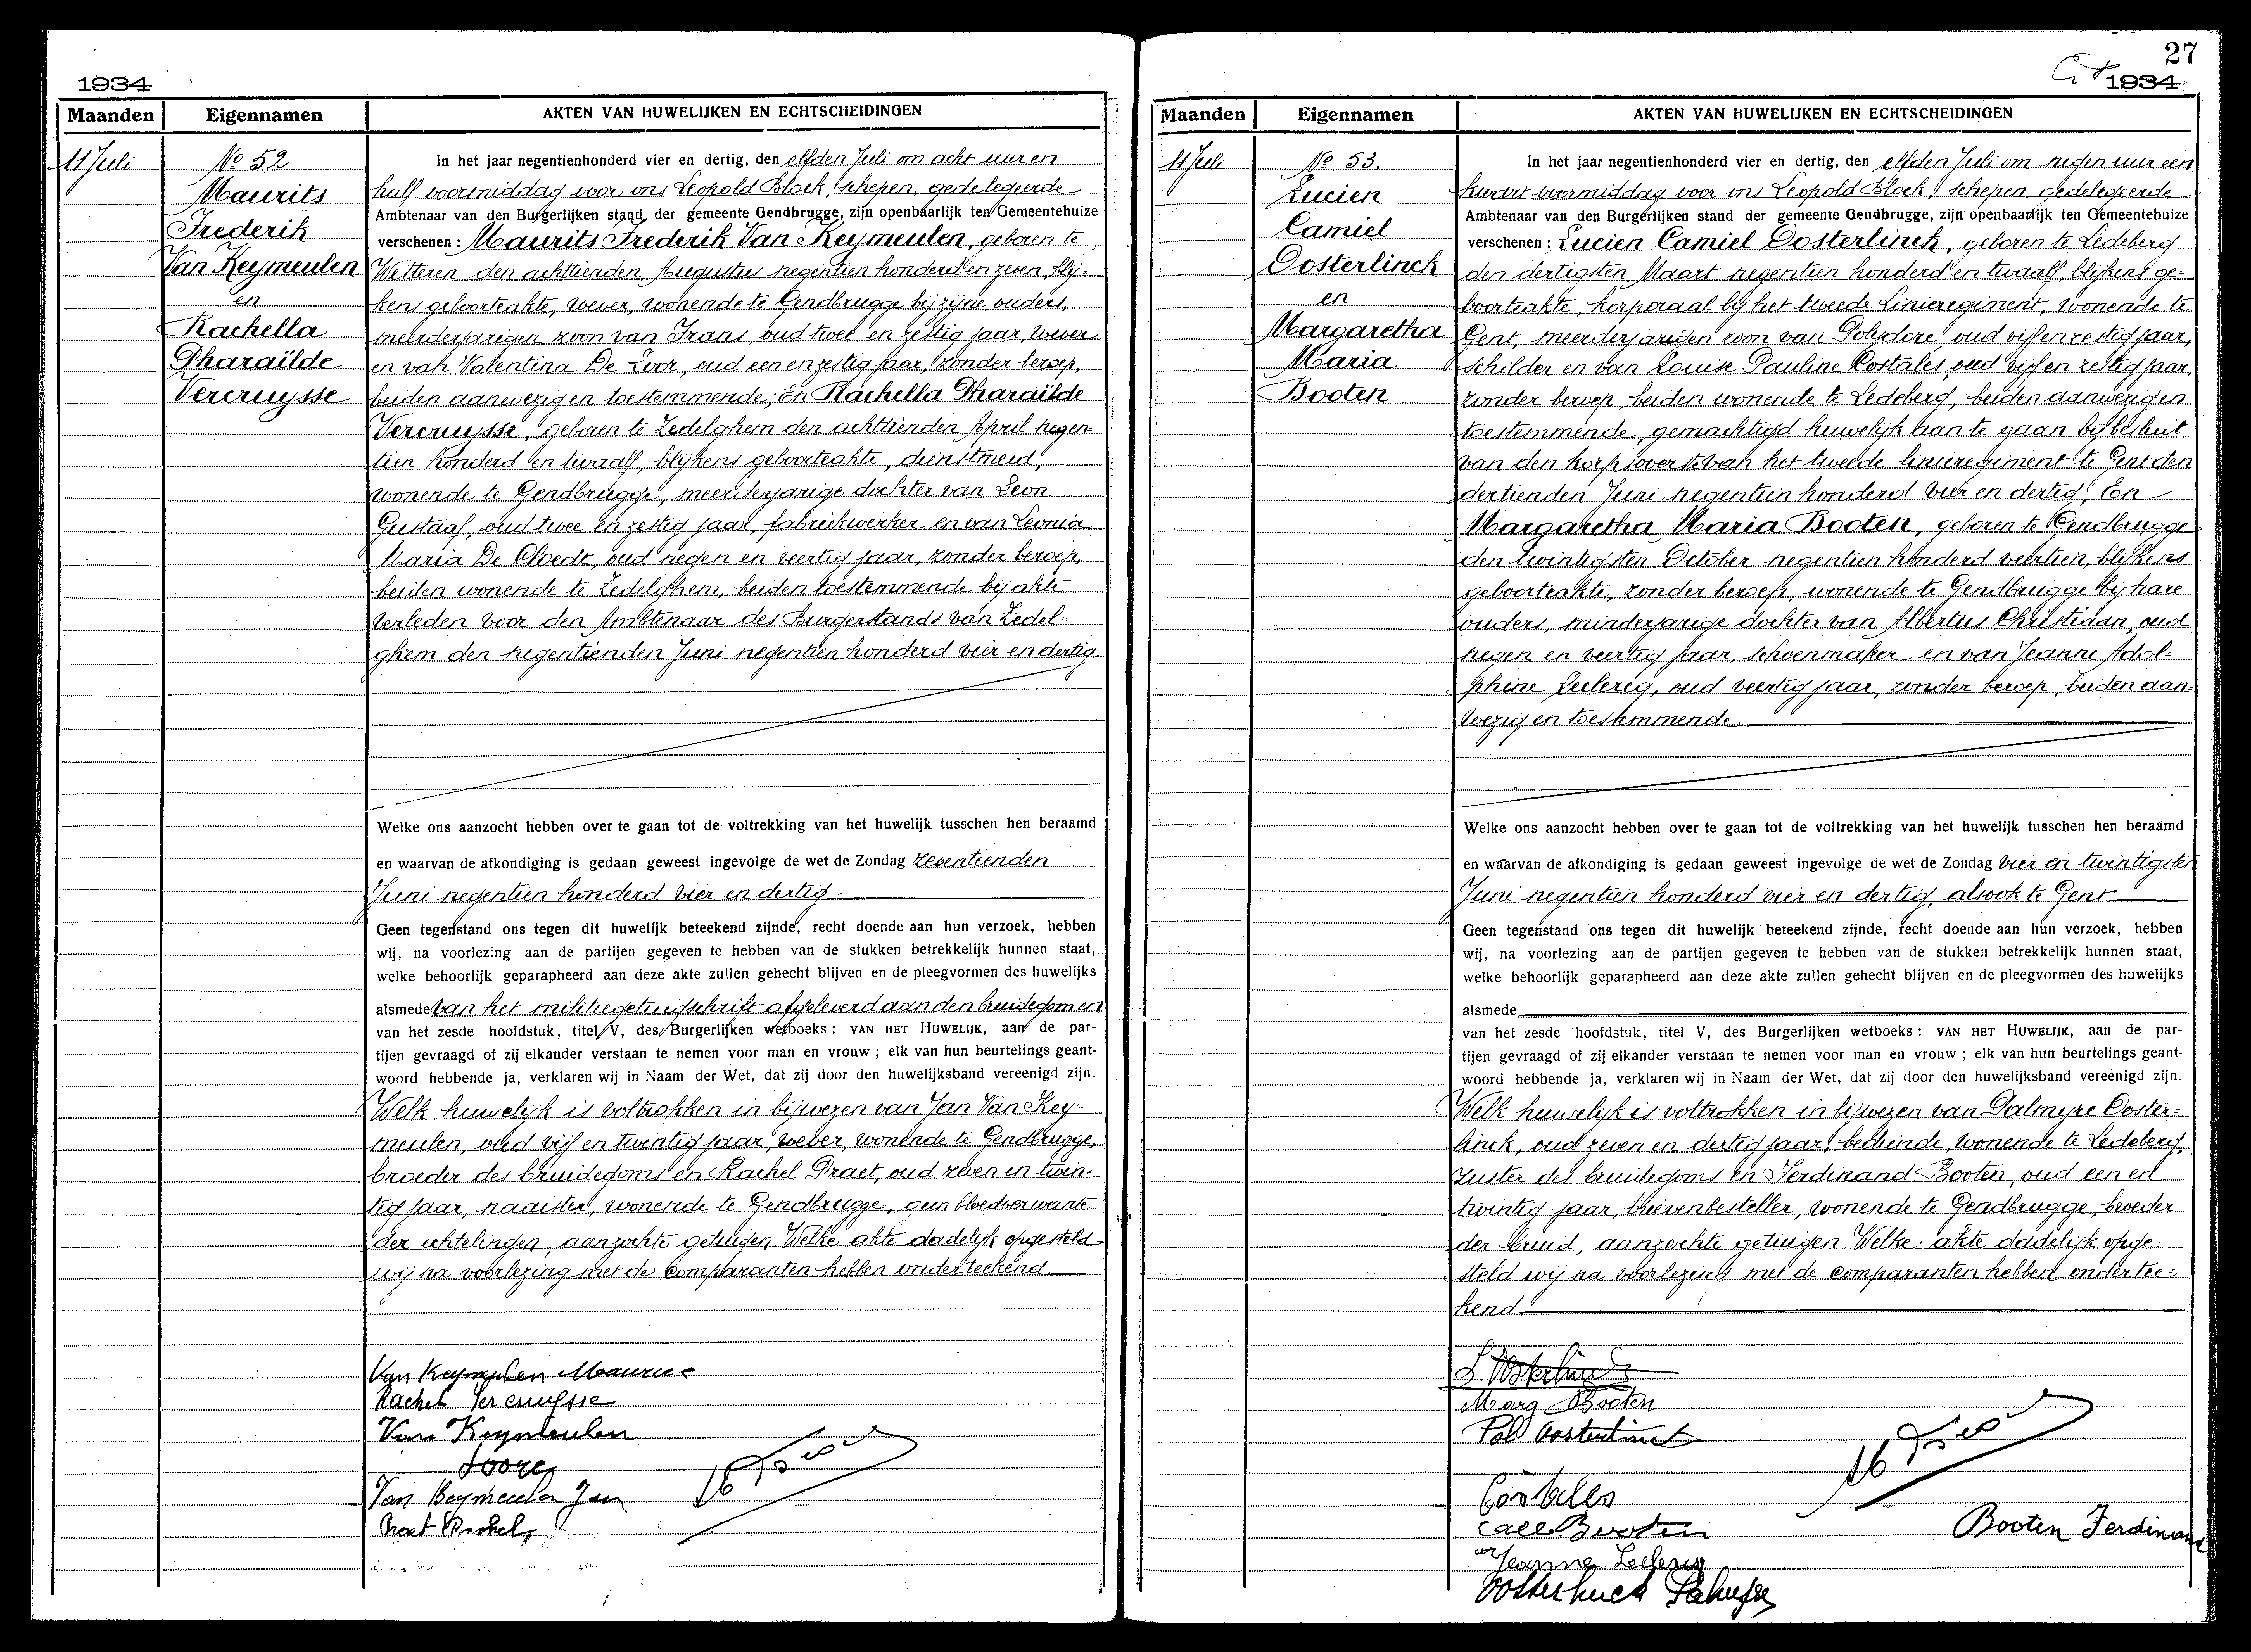 1934
Maanden
Eigennamen
AKTEN VAN HUWELIJKEN EN ECHTSCHEIDINGEN
11 Juli
No 52
Maurits
Frederik
Van Keymeulen
en
Rachella
Pharaïlde
Vercruysse
In het jaar negentienhonderd vier en dertig, den elfden Juli om acht uur en
half voormiddag voor ons Leopold Block, schepen, gedelegeerde
Ambtenaar van den Burgerlijken stand der gemeente Gendbrugge, zijn openbaarlijk ten Gemeentehuize
verschenen : Maurits Frederik Van Keymeulen, geboren te
Wetteren den achttienden Augustus negentien honderd en zeven, blij-
kens geboorteakte, wever, wonende te Gendbrugge bij zijne ouders,
meerderjarigen zoon van Frans, oud twee en zestig jaar, wever
en van Valentina De Loor, oud een en zestig jaar, zonder beroep,
beiden aanwezig en toestemmende; En Rachella Pharaïlde
Vercruysse, geboren te Zedelghem den achttienden April negen-
tien honderd en twaalf, blijkens geboorteakte, dienstmeid,
wonende te Gendbrugge, meerderjarige dochter van Leon
Gustaaf, oud twee en zestig jaar, fabriekwerker en van Leonia
Maria De Cloedt, oud negen en veertig jaar, zonder beroep,
beiden wonende te Zedelghem, beiden toestemmende bij akte
verleden voor den Ambtenaar des Burgerstands van Zedel-
ghem den negentienden Juni negentien honderd vier en dertig.
Welke ons aanzocht hebben over te gaan tot de voltrekking van het huwelijk tusschen hen beraamd
en waarvan de afkondiging is gedaan geweest ingevolge de wet de Zondag zeventienden
Juni negentien honderd vier en dertig.
Geen tegenstand ons tegen dit huwelijk beteekend zijnde, recht doende aan hun verzoek, hebben
wij, na voorlezing aan de partijen gegeven te hebben van de stukken betrekkelijk hunnen staat,
welke behoorlijk geparapheerd aan deze akte zullen gehecht blijven en de pleegvormen des huwelijks
alsmede van het militiegetuigschrift afgeleverd aan den bruidegom en
van het zesde hoofdstuk, titel V, des Burgerlijken wetboeks : VAN HET HUWELIJK, aan de par-
tijen gevraagd of zij elkander verstaan te nemen voor man en vrouw ; elk van hun beurtelings geant-
woord hebbende ja, verklaren wij in Naam der Wet, dat zij door den huwelijksband vereenigd zijn.
Welk huwelijk is voltrokken in bijwezen van Jan Van Key-
meulen, oud vijf en twintig jaar, wever, wonende te Gendbrugge,
broeder des bruidegoms en Rachel Praet, oud zeven en twin-
tig jaar, naaister, wonende te Gendbrugge, geen bloedverwante
der echtelingen, aanzochte getuigen Welke akte dadelijk opgesteld
wij na voorlezing met de comparanten hebben onderteekend
Van Keymeulen Maurice
Rachel Vercruysse
Van Keymeulen
Van Keymeulen Jan
Praet Rachel
27
1934
Maanden
Eigennamen
AKTEN VAN HUWELIJKEN EN ECHTSCHEIDINGEN
11 Juli
No 53.
Lucien
Camiel
Oosterlinck
en
Margaretha
Maria
Booten
In het jaar negentienhonderd vier en dertig, den elfden Juli om negen uur een
kwart voormiddag voor ons Leopold Block, schepen, gedelegeerde
Ambtenaar van den Burgerlijken stand der gemeente Gendbrugge, zijn openbaarlijk ten Gemeentehuize
verschenen : Lucien Camiel Oosterlinck, geboren te Ledeberg
den dertigsten Maart negentien honderd en twaalf, blijkens ge-
boorteakte, korporaal bij het tweede Linieregiment, wonende te
Gent, meerderjarigen zoon van Polydore, oud vijf en zestig jaar,
schilder en van Louise Pauline Costales, oud vijf en zestig jaar,
zonder beroep, beiden wonende te Ledeberg, beiden aanwezig en
toestemmende, gemachtigd huwelijk aan te gaan bij besluit
van den korpsoverste van het tweede linieregiment te Gent den
dertienden Juni negentien honderd vier en dertig; En
Margaretha Maria Booten, geboren te Gendbrugge
den twintigsten October negentien honderd veertien, blijkens
geboorteakte, zonder beroep, wonende te Gendbrugge bij hare
ouders, minderjarige dochter van Albertus Christiaan, oud
negen en veertig jaar, schoenmaker en van Jeanne Adol-
phine Leclercq, oud veertig jaar, zonder beroep, beiden aan-
wezig en toestemmende.
Welke ons aanzocht hebben over te gaan tot de voltrekking van het huwelijk tusschen hen beraamd
en waarvan de afkondiging is gedaan geweest ingevolge de wet de Zondag vier en twintigsten
Juni negentien honderd vier en dertig, alsook te Gent
Geen tegenstand ons tegen dit huwelijk beteekend zijnde, recht doende aan hun verzoek, hebben
wij, na voorlezing aan de partijen gegeven te hebben van de stukken betrekkelijk hunnen staat,
welke behoorlijk geparapheerd aan deze akte zullen gehecht blijven en de pleegvormen des huwelijks
alsmede
van het zesde hoofdstuk, titel V, des Burgerlijken wetboeks : VAN HET HUWELIJK, aan de par-
tijen gevraagd of zij elkander verstaan te nemen voor man en vrouw ; elk van hun beurtelings geant-
woord hebbende ja, verklaren wij in Naam der Wet, dat zij door den huwelijksband vereenigd zijn.
Welk huwelijk is voltrokken in bijwezen van Palmyre Ooster-
linck, oud zeven en dertig jaar, bediende, wonende te Ledeberg,
zuster des bruidegoms en Ferdinand Booten, oud een en
twintig jaar, brievenbesteller, wonende te Gendbrugge, broeder
der bruid, aanzochte getuigen Welke akte dadelijk opge-
steld wij na voorlezing met de comparanten hebben ondertee-
kend
L Oosterlinck
Marg Booten
Pol Oosterlinck
Costales
Booten
Booten Ferdinand
Jeanne Leclercq
Oosterlinck